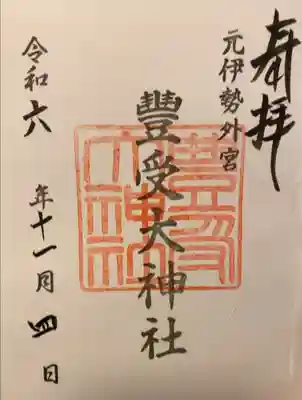 奉拝
元伊勢外宮
豐受大神社
豊受大神社
令和六年十一月四日